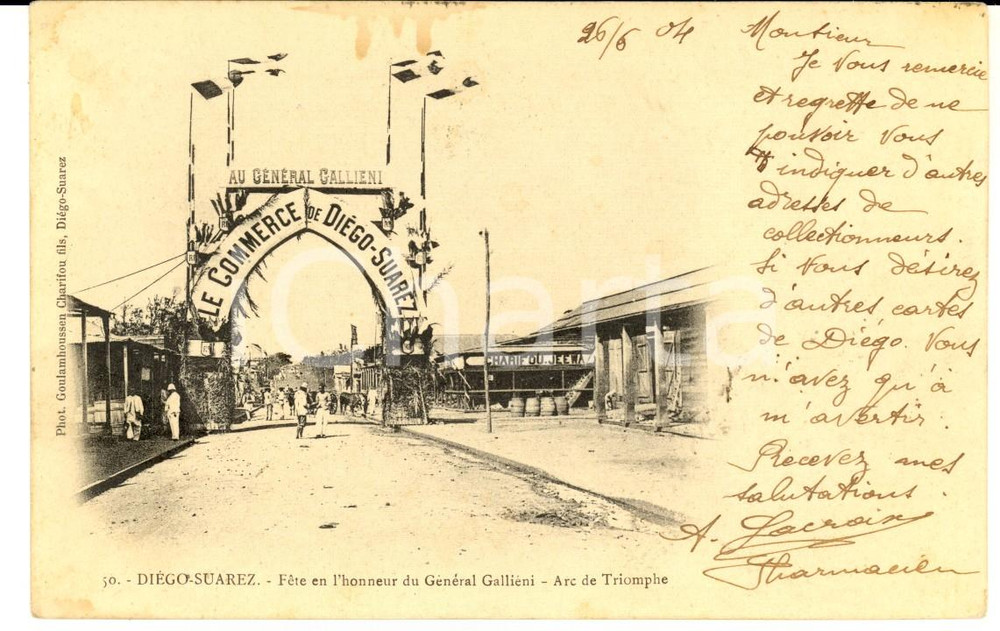 26/6 04
Monsieur
Je Vous remercie
et regrette de ne
pouvoir Vous
indiquer d'autres
adresses de
collectionneurs.
Si Vous désirez
d'autres cartes
de Diégo. Vous
n'avez qu'à
m'avertir.
Recevez mes
salutations.
A. Lacroix
Pharmacien
AU GÉNÉRAL GALLIENI
LE COMMERCE DE DIÉGO-SUAREZ
CHARIFOU JEEWA
Phot. Goulamhoussen Charifou fils, Diégo-Suarez
50. - DIÉGO-SUAREZ. - Fête en l'honneur du Général Galliéni - Arc de Triomphe
Charta